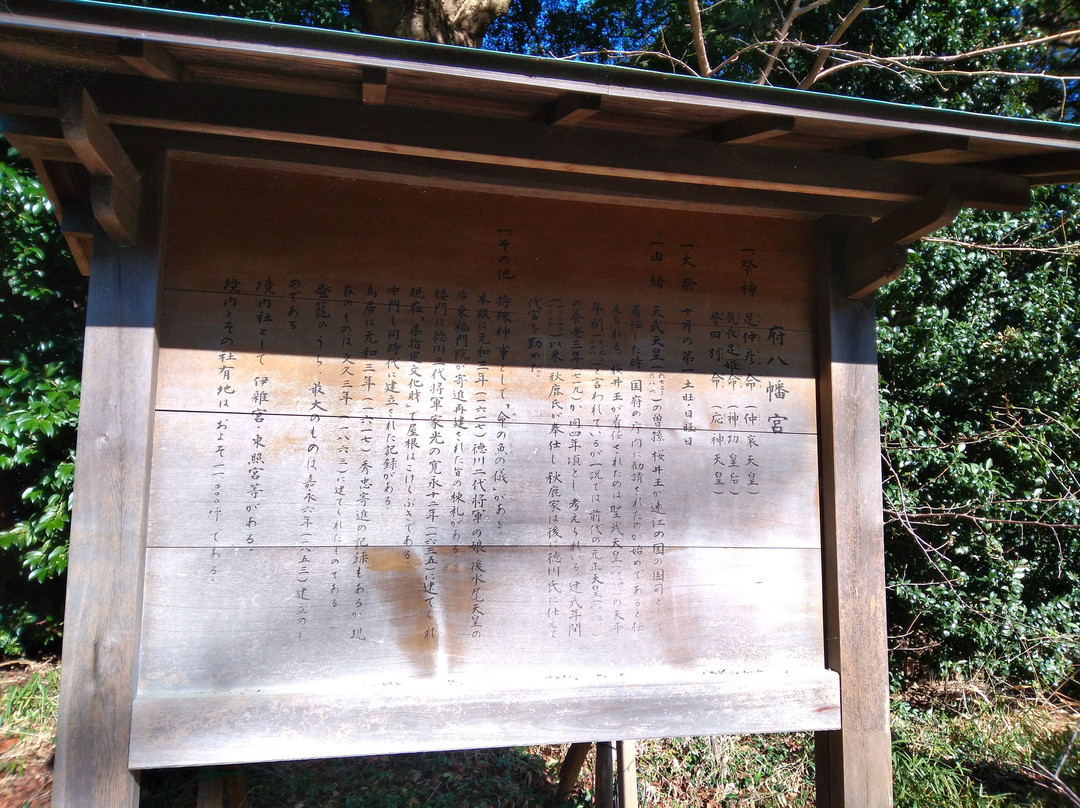 府八幡宮
一祭神 足仲彦命(仲哀天皇)
気長足姫命(神功皇后)
誉田別命(応神天皇)
一大祭 十月の第一土曜・日曜日
一由緒 天武天皇の曽孫、桜井王が遠江の国の国司として
着任した時国府の庁内に勧請されたのが始めであると伝
えられる。桜井王が着任されたのは聖武天皇の天平
年間と言われているが一説では前代の元正天皇
の養老三年(七一九)か同四年頃とも考えられいる 建武年間
以来秋鹿氏が奉仕し秋鹿家は後に徳川氏に仕えて
代官を勤めた。
一その他 特殊神事として「命の魚の儀」がある
本殿は元和三年(一六一七)徳川二代将軍の娘 後水尾天皇の
后東福門院が寄進再建された旨の棟札がある
楼門は徳川三代将軍家光の寛永十二年(一六三五)に建てられ
現在県指定文化財で屋根はこけらぶきである。
中門も同時代に建立された記録がある
鳥居は元和三年(一六一七)秀忠寄進の記録もあるが現
在のものは文久三年(一八六三)に建てられたものである
燈籠のうち最大のものは嘉永六年(一八五三)建立のも
のである
境内社として 伊雑宮・東照宮等がある。
境内とその社有地はおよそ一一〇〇〇坪である。